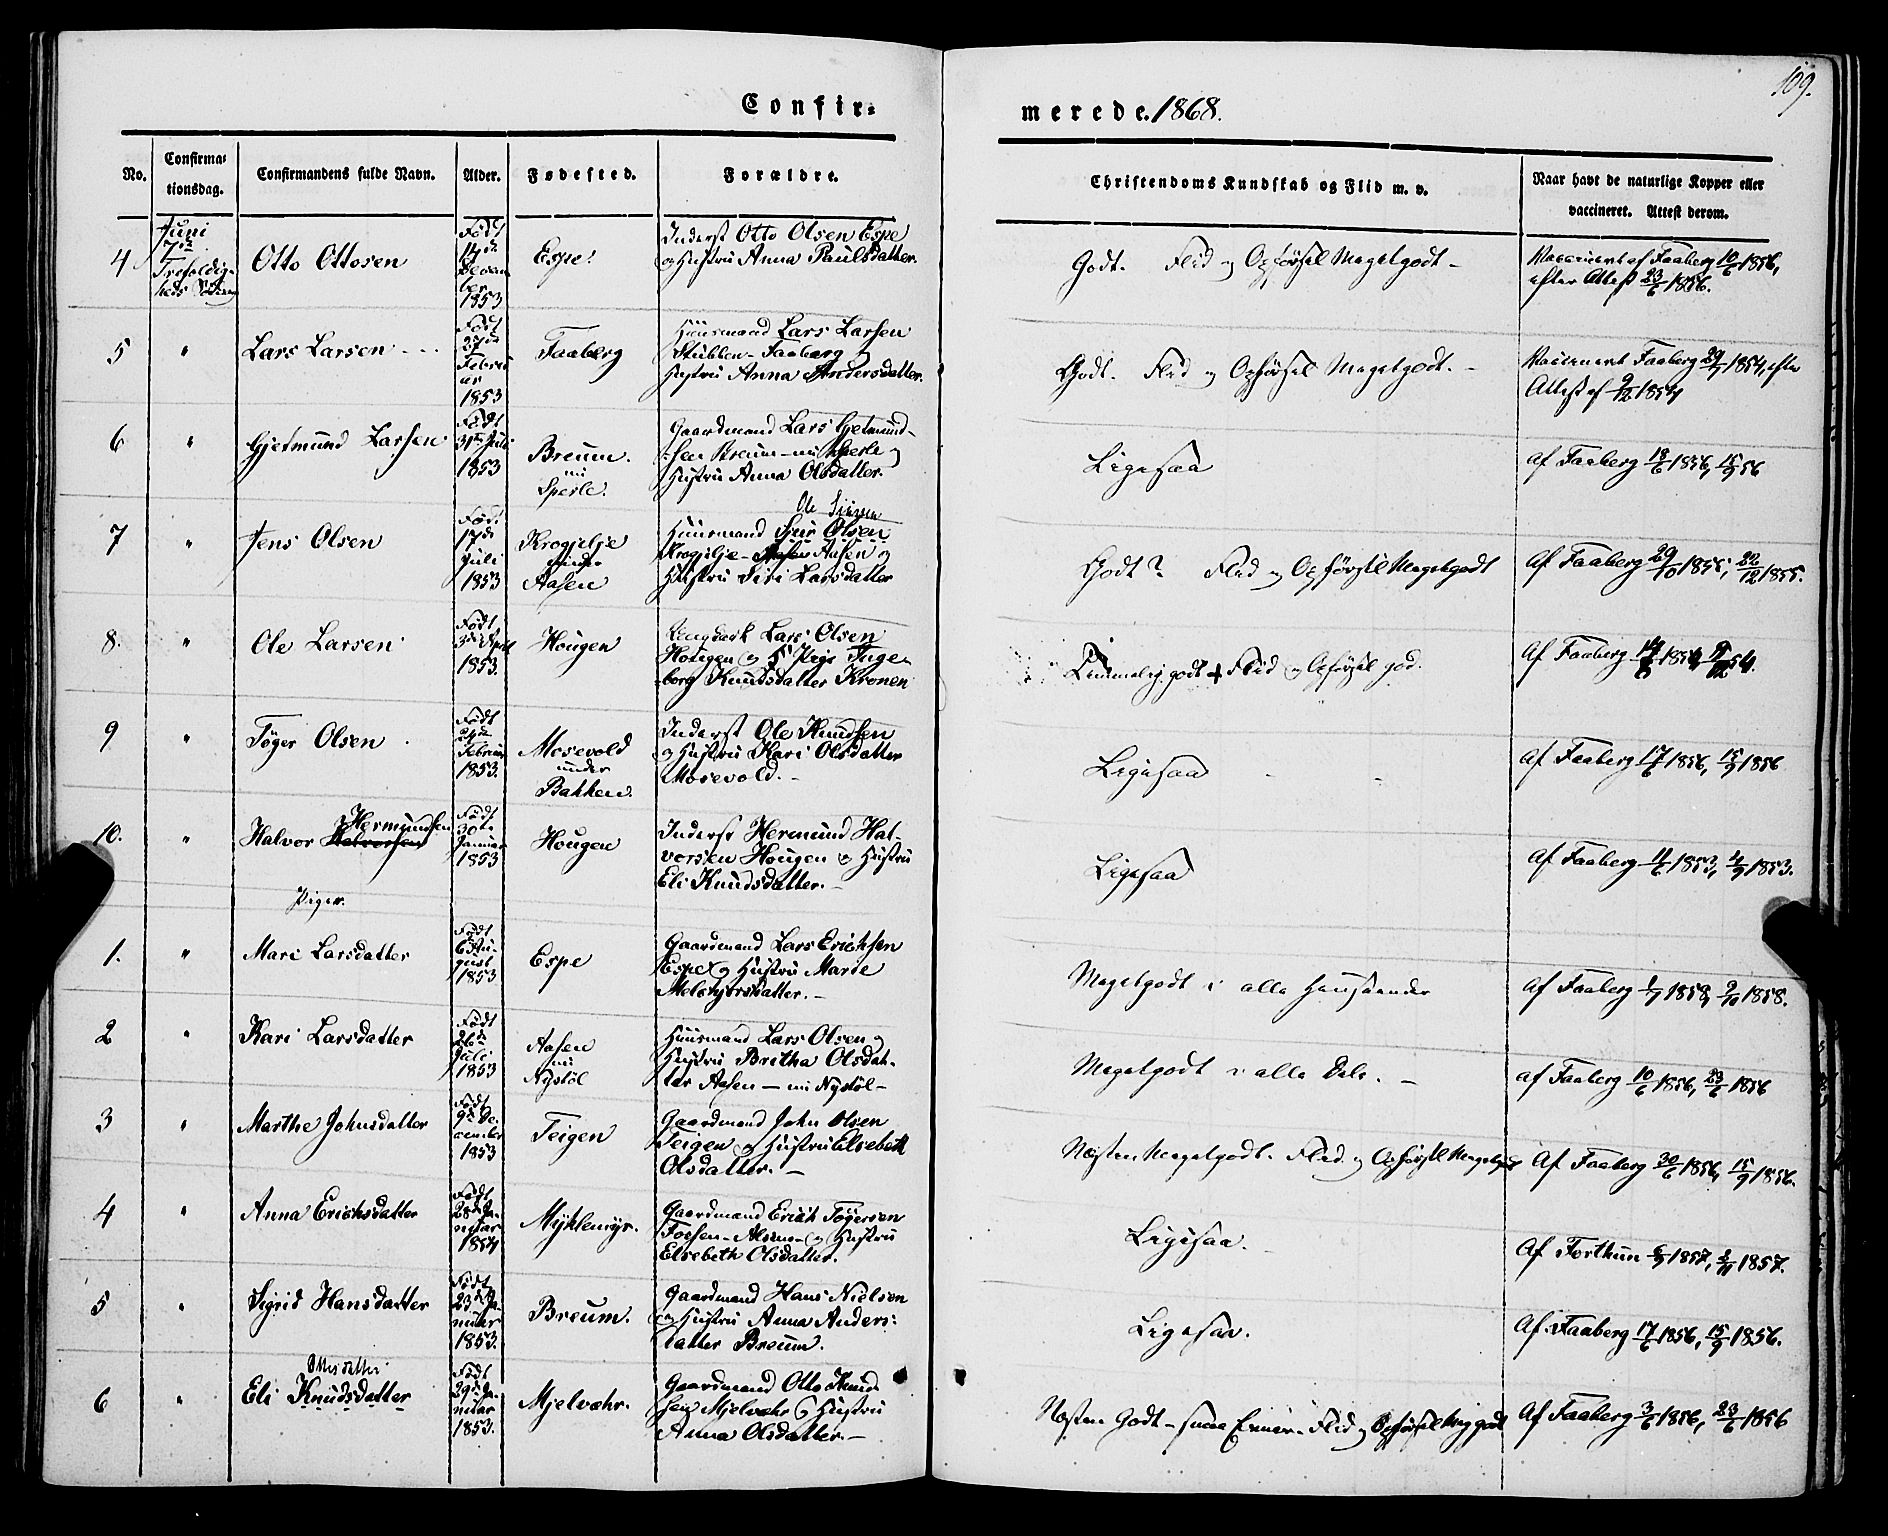 109.
Confir=
merede. 1868.
No.
Confirma=
tionsdag.
Confirmandens fulde Navn.
Alder.
Fødested.
Forældre.
Christendoms Kundskab og Flid m. v.
Naar havt de naturlige Kopper eller
vaccineret. Attest derom.
4
Juni
7de
Otto Ottosen
Født
14de
1853
Espe.
Inderst Otto Olsen Espe
og Hustru Anna Paulsdatter.
Godt. Flid og Opførsel Megetgodt –
Vaccineret af Faaberg 10/6 1856,
efter Attest 23/6 1856.
5
"
Lars Larsen
Født
27de
Febru
ar
1853
Faaberg
Huusmand Lars Larsen
Stubben – Faaberg og
Hustru Anna Andersdatter.
Godt. Flid og Opførsel Megetgodt. –
Vaccineret Faaberg 29/7 1854, efter
Attest af 9/12 1854
6
"
Gjetmund Larsen
Født
31te Juli
1853
Breum.
nu
Sperle.
Gaardmand Lars Gjetmund-
sen Breum – nu Sperle og
Hustru Anna Olsdatter.
Ligesaa
af Faaberg 18/6 1856, 15/9 56
7
"
Jens Olsen
Født
17de
Juli
1853
Krogjelje
under
Aasen
Ole
Huusmand Olsen
Krogjelje – Aasen og
Hustru Siri Larsdatter
Godt? Flid og Opførsel Megetgodt
Af Faaberg 29/10 1855, 22/12 1855.
8.
"
Ole Larsen
Født
3de April
1853.
Hougen
Ungkarl Lars Olsen
Hougen og Pige Inge-
borg Knudsdatter Kronen
Temmelig godt + Flid og Opførsel god.
Af Faaberg 1854, 54.
9
"
Tøger Olsen
Født
24de
Februar
1853.
Mosevold
under
Bakken.
Inderst Ole Knudsen
og Hustru Kari Olsdatter
Mosevold. –
Ligesaa
af Faaberg 17/6 1856, 15/9 1856
10.
"
Hermundsen
Halvor Halvorsen
Født
30te
Januar
1853
Hougen
Inderst Hermund Hal-
vorsen Hougen og Hustru
Eli Knudsdatter. –
Ligesaa
Af Faaberg 11/6 1853, 4/9 1853.
Piger.
1.
"
Mari Larsdatter
Født
6 Au-
gust
1853
Espe
Gaardmand Lars Erichsen
Espe og Hustru Marie
Melchjorsdatter. –
Megetgodt i alle Henseender
Af Faaberg 1/7 1858, 9/10 1858.
2
"
Kari Larsdatter
Født
26de
Juli
1853
Aasen
nu
Nystøl
Huusmand Lars Olsen og
Hustru Britha Olsdat-
ter Aasen – nu Nystøl –
Megetgodt i alle Dele. –
af Faaberg 10/6 1856, 23/6 1856
3
"
Marthe Johnsdatter
Født
9de De-
cember
1853
Teigen
Gaardmand John Olsen
Teigen og Hustru Elsebeth
Olsdatter. –
Næsten Megetgodt. Flid og Opførsel Megetgodt
Af Faaberg 30/6 1856, 15/9 1856.
4
"
Anna Erichsdatter
Født
28de Ja-
nuar
1854
Myklemyr.
Gaardmand Erich Tøgersen
og Hustru
Elsebeth Olsdatter.
Ligesaa.
Af Forthun 6/9 1857, 1857.
5
"
Sigrid Hansdatter
Født
23de Ja-
nuar
1853.
Breum.
Gaardmand Hans Nielsen
og Hustru Anna Anders:
datter Breum.
Ligesaa.
Af Faaberg 17/6 1856, 15/9 1856.
6
"
Ottosdatter
Eli Knudsdatter
Født
29de Ja-
nuar
1853.
Mjelvæhr.
Gaardmand Otto Knud-
sen Mjelvæhr og Hustru
Anna Olsdatter. –
Næsten Godt – svage Evner – Flid og Opførsel Meg godt
Af Faaberg 3/6 1856, 23/6 1856